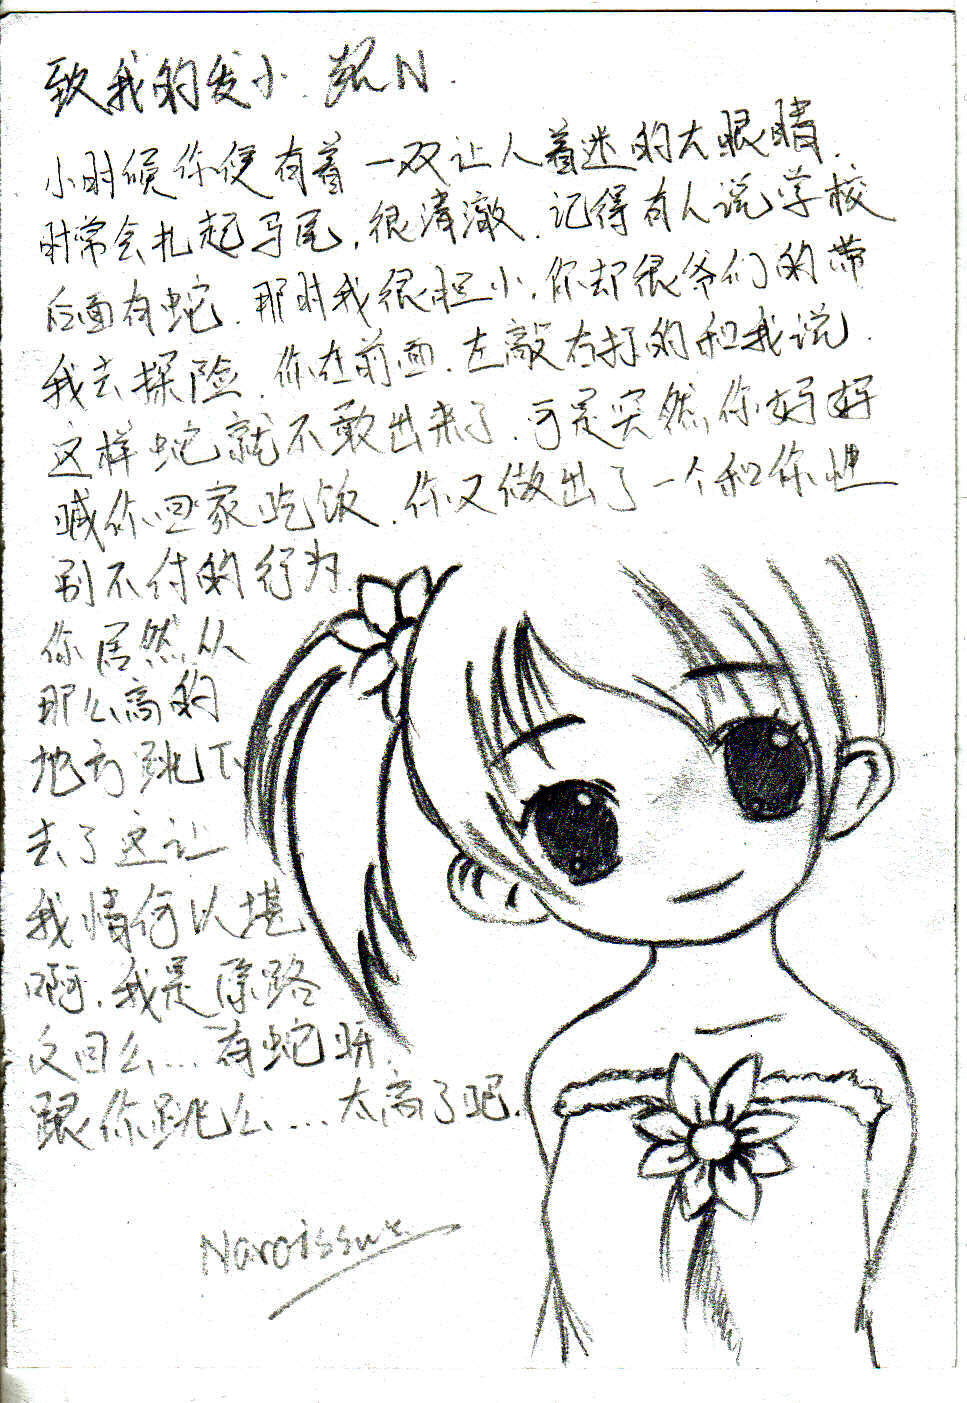 致我的发小 N.
小时候你便有着一双让人着迷的大眼睛.
时常会扎起马尾,很清澈.记得有人说学校
后面有蛇.那时我很胆小,你却很爷们的带
我去探险.你在前面.左敲右打的和我说.
这样蛇就不敢出来了.可是突然你妈妈
喊你回家吃饭.你又做出了一个和你性
别不付的行为.
你居然从
那么高的
地方跳下
去了这让
我情何以堪
啊.我是原路
反回么...有蛇呀.
跟你跳么...太高了吧.
Narcissus